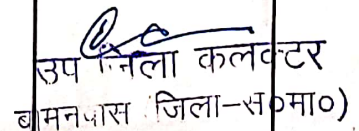 उप जिला कलक्टर
बामनवास जिला-स०मा०)